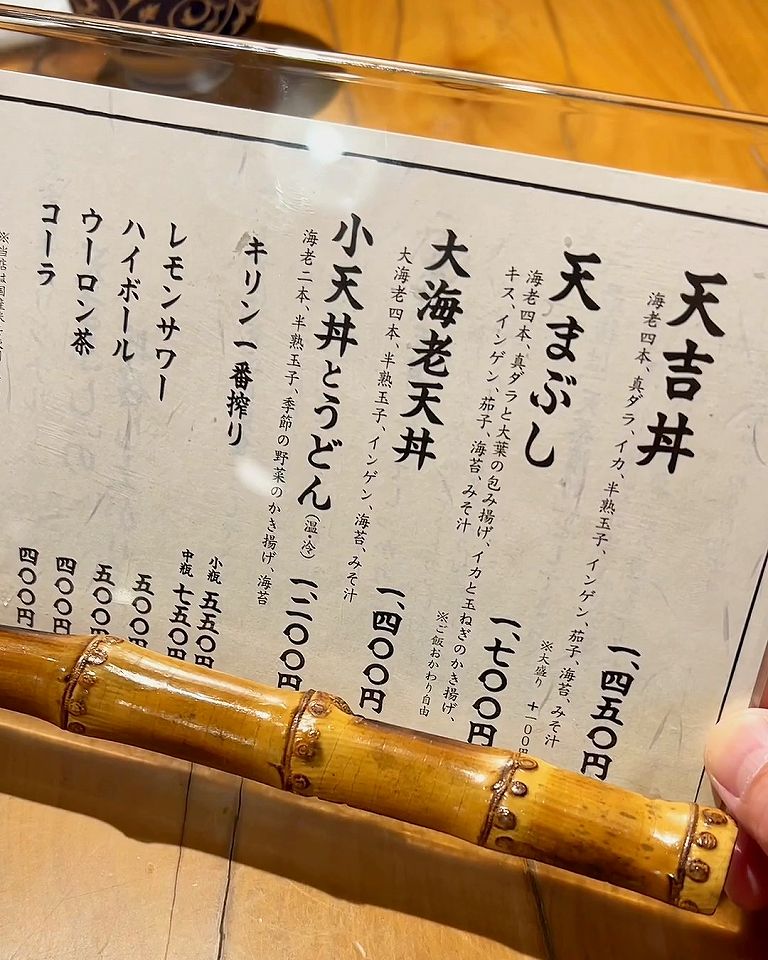 天吉丼
海老四本、真ダラ、イカ、半熟玉子、インゲン、茄子、海苔、みそ汁
一、四五〇円
※大盛り +一〇〇円
天まぶし
海老四本、真ダラと大葉の包み揚げ、イカと玉ねぎのかき揚げ、
キス、インゲン、茄子、海苔、みそ汁
※ご飯おかわり自由
一、七〇〇円
大海老天丼
大海老四本、半熟玉子、インゲン、海苔、みそ汁
一、四〇〇円
小天丼とうどん(温・冷)
海老二本、半熟玉子、季節の野菜のかき揚げ、海苔
一、二〇〇円
キリン一番搾り
小瓶 五五〇円
中瓶 七五〇円
レモンサワー 五〇〇円
ハイボール 五〇〇円
ウーロン茶 四〇〇円
コーラ 四〇〇円
※当店は国産米